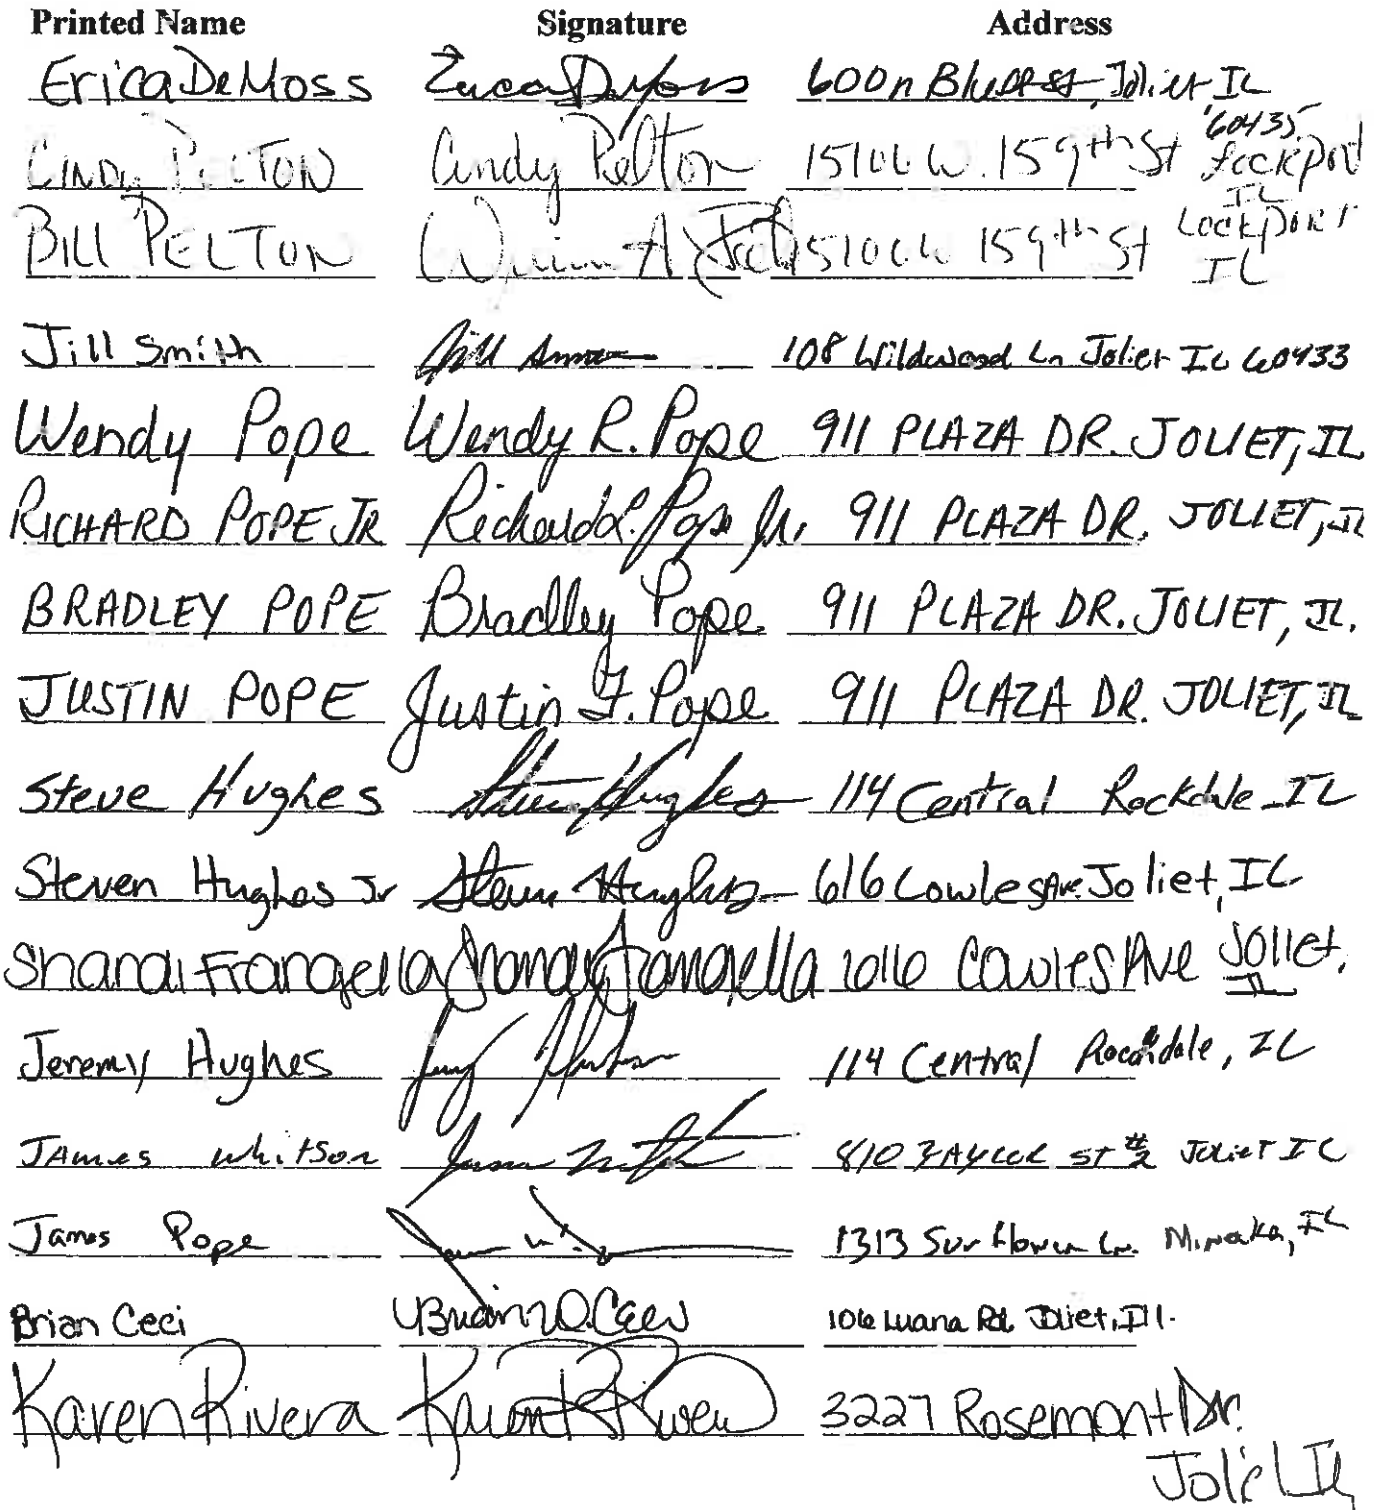 Printed Name Signature Address
Erica DeMoss Erica DeMoss 600 n Bluff St, Joliet IL 60435
CINDY PELTON Cindy Pelton 15106 W. 159th St Lockport IL
BILL PELTON William A Pelton 15106 W 159th St Lockport IL
Jill Smith Jill 108 Wildwood Ln Joliet IL 60433
Wendy Pope Wendy R. Pope 911 PLAZA DR. JOLIET, IL
RICHARD POPE JR Richard L. Pope Jr. 911 PLAZA DR. JOLIET, IL
BRADLEY POPE Bradley Pope 911 PLAZA DR. JOLIET, IL.
JUSTIN POPE Justin F. Pope 911 PLAZA DR. JOLIET, IL
Steve Hughes Steven Hughes 114 Central Rockdale IL
Steven Hughes Jr Steven Hughes 616 Cowles Ave. Joliet, IL
Shandi Frangella Shandi Frangella 616 Cowles Ave Joliet, IL
Jeremy Hughes 114 Central Rockdale, IL
JAmes Whitson 810 TAYLOR ST #2 JOLIET IL
James Pope 1313 Sunflower Ln. Minooka, IL
Brian Ceci Brian D. Ceci 106 Luana Rd. Joliet, Ill.
Karen Rivera Karen R Rivera 3227 Rosemont Dr.
Joliet IL